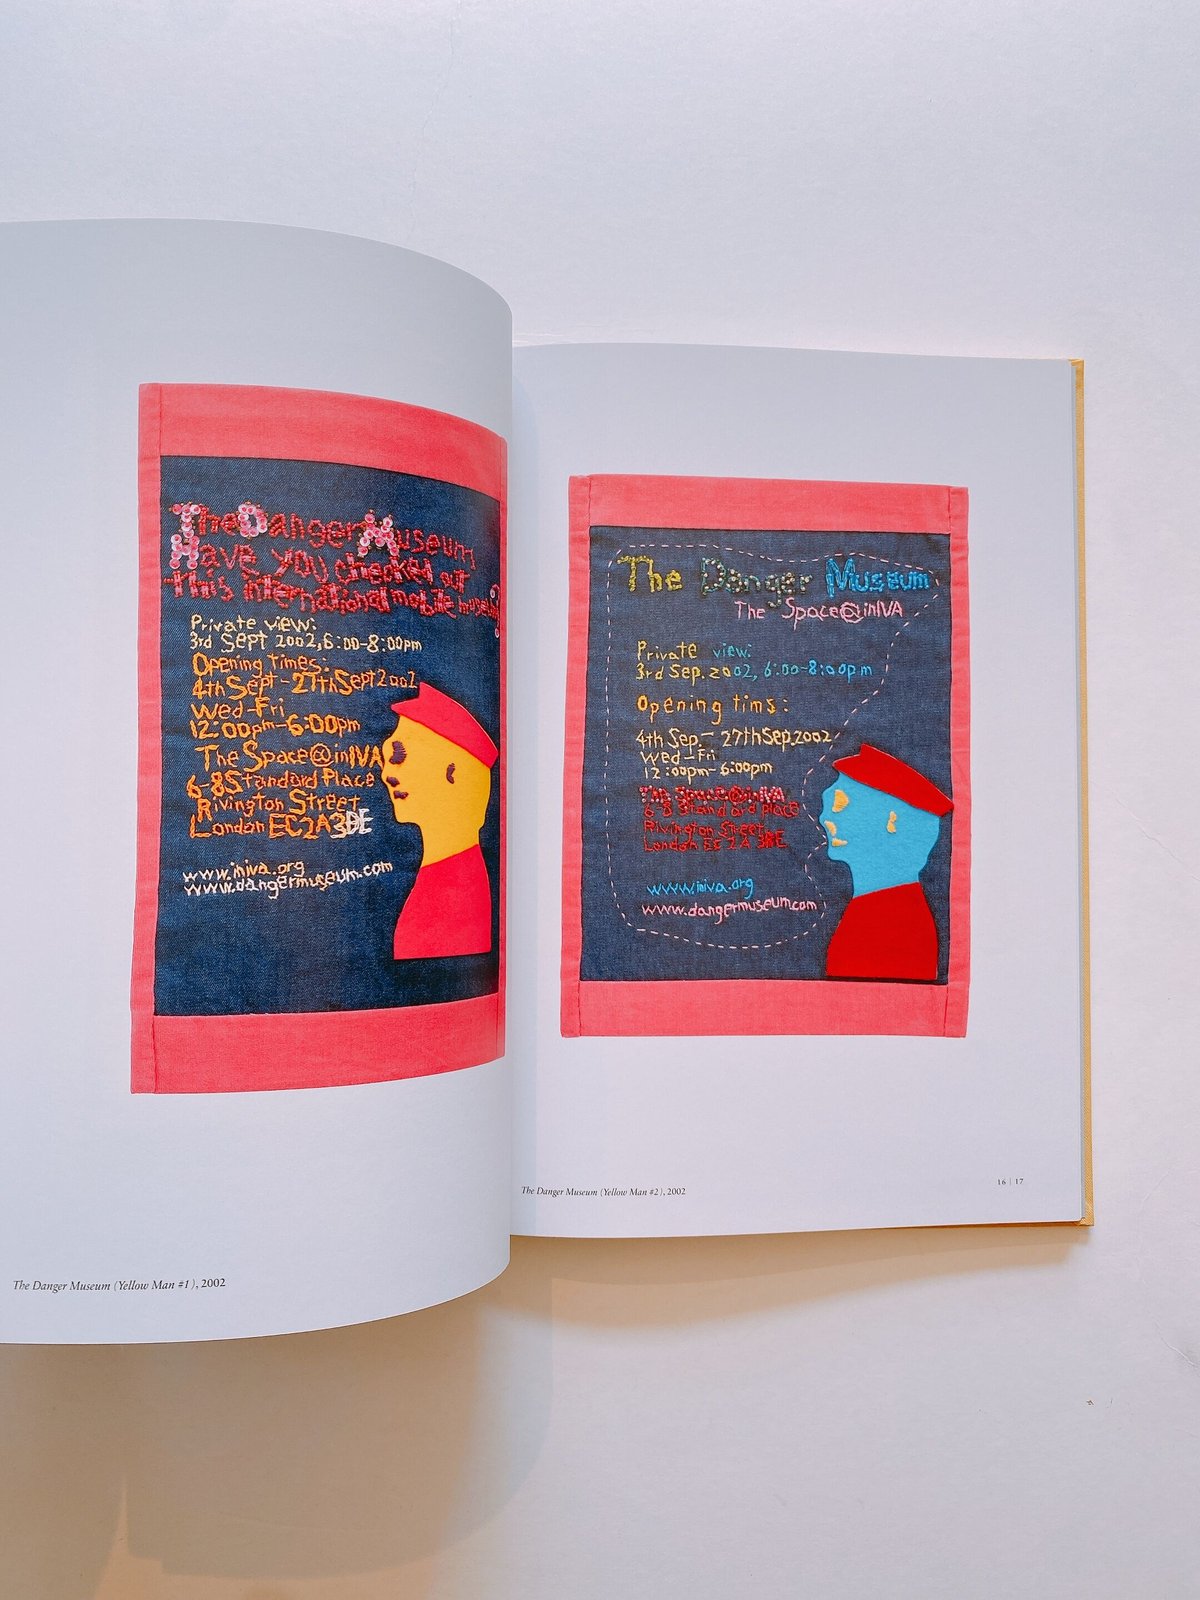 The Danger Museum
Have you checked out
this international mobile museum?
Private view:
3rd Sept 2002, 6:00-8:00pm
Opening times:
4th Sept-27th Sept 2002
Wed-Fri
12:00pm-6:00pm
The Space@inIVA
6-8 Standard Place
Rivington Street
London EC2A 3BE
www.iniva.org
www.dangermuseum.com
The Danger Museum (Yellow Man #1), 2002
The Danger Museum
The Space@inIVA
Private view:
3rd Sep. 2002, 6:00-8:00pm
Opening tims:
4th Sep.- 27th Sep.2002
Wed-Fri
12:00pm-6:00pm
The Space@inIVA
6-8 Standard place
Rivington Street
London EC 2A 3BE
www.iniva.org
www.dangermuseum.com
The Danger Museum (Yellow Man #2), 2002
16 | 17